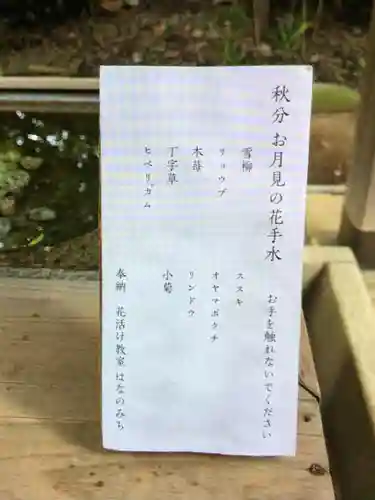 秋分 お月見の花手水
お手を触れないでください
雪柳
ススキ
リョウブ
オヤマボクチ
木苺
リンドウ
丁字草
小菊
ヒペリカム
奉納 花活け教室 はなのみち